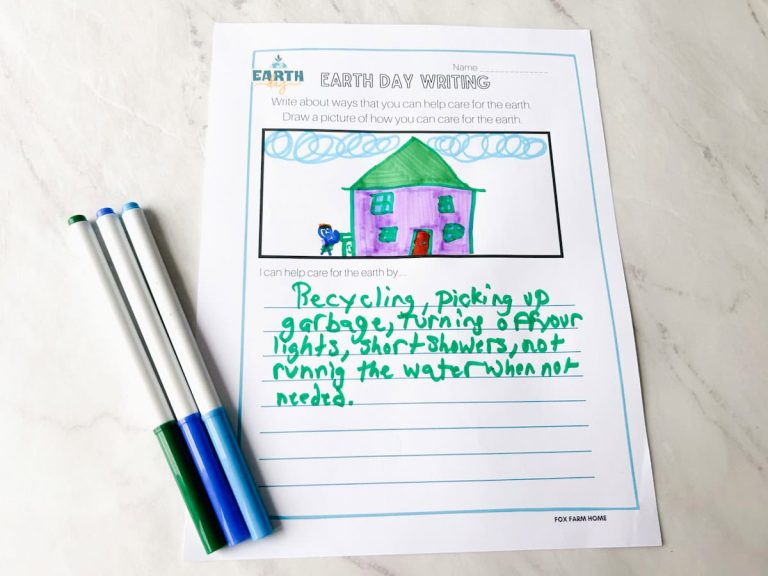 Name
EARTH
day
EARTH DAY WRITING
Write about ways that you can help care for the earth.
Draw a picture of how you can care for the earth.
I can help care for the earth by....
Recycling, picking up
garbage, turning off your
lights, short showers, not
runnig the water when not
needed.
FOX FARM HOME